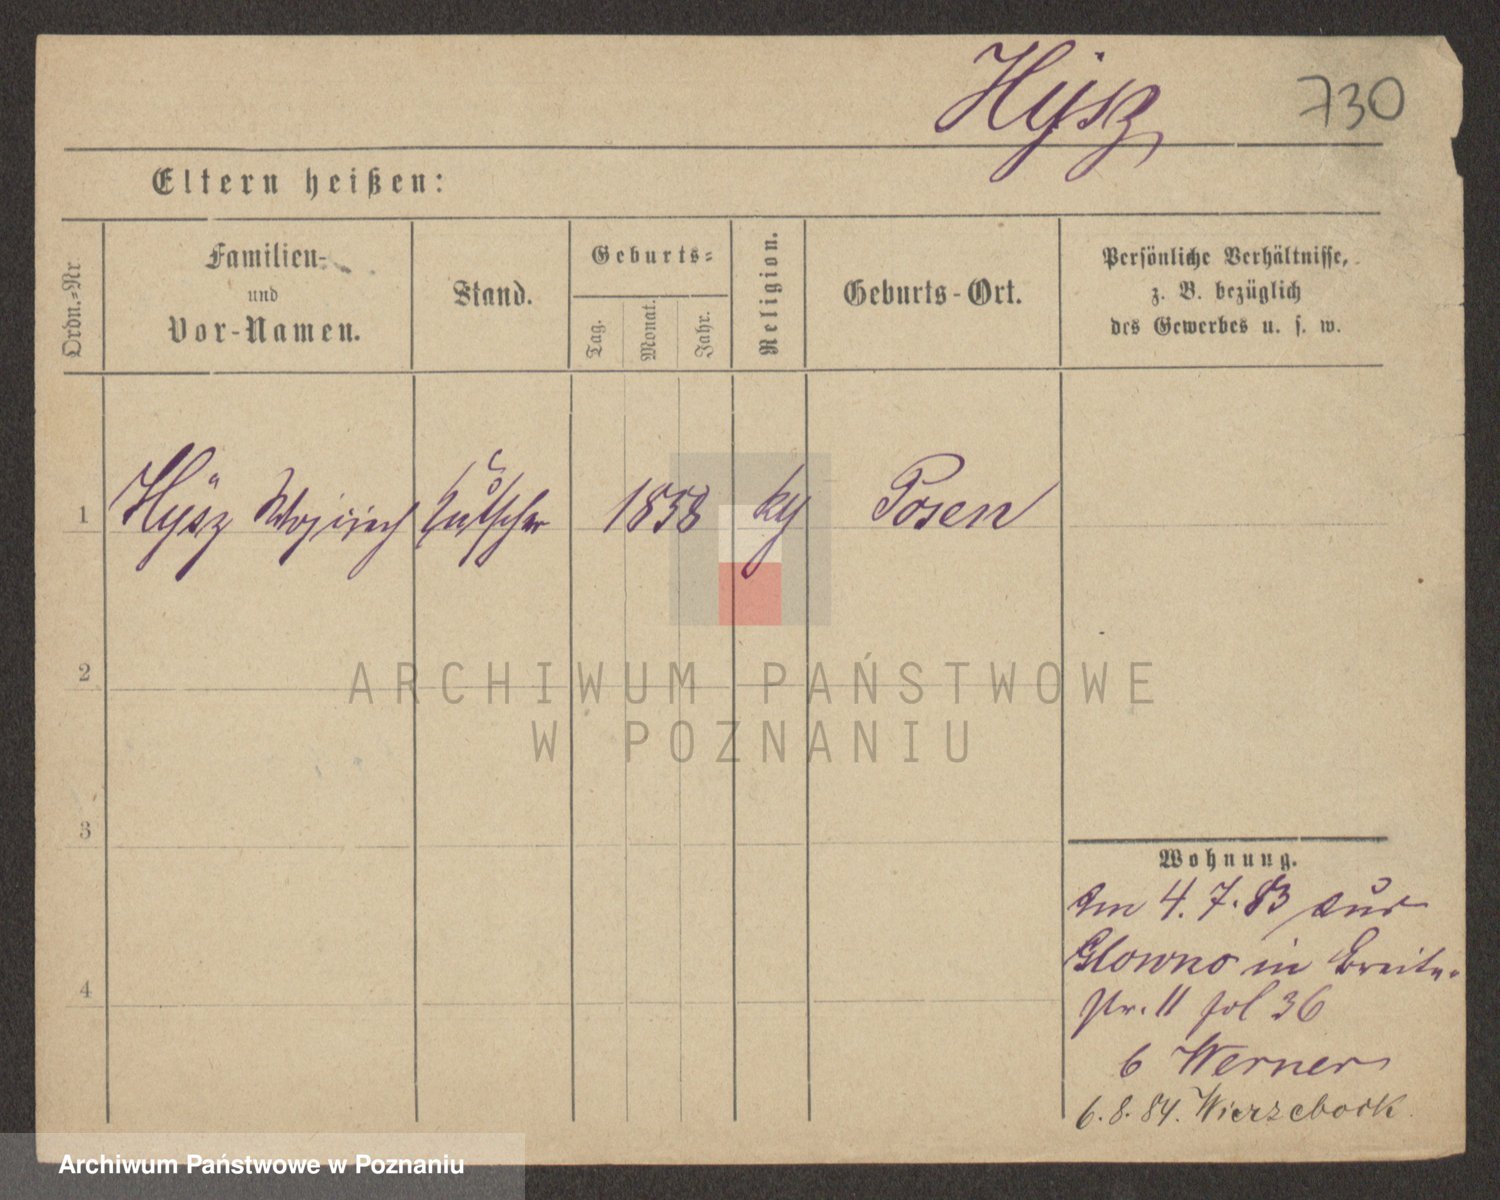 Hÿsz 730
Eltern heißen:
Ordn.-Nr
Familien-
und
Vor-Namen.
Stand.
Geburts-
Tag.
Monat.
Jahr.
Religion.
Geburts-Ort.
Persönliche Verhältnisse,
z. B. bezüglich
des Gewerbes u. s. w.
1 Hÿsz Wojciech Kutscher 1858 Posen
2
3
4
ARCHIWUM PAŃSTWOWE
W POZNANIU
Wohnung.
Am 4. 7. 83 aus
Glowno in Breite-
str. 11 fol 36
b Werner
6. 8. 84. Wierzebock
Archiwum Państwowe w Poznaniu